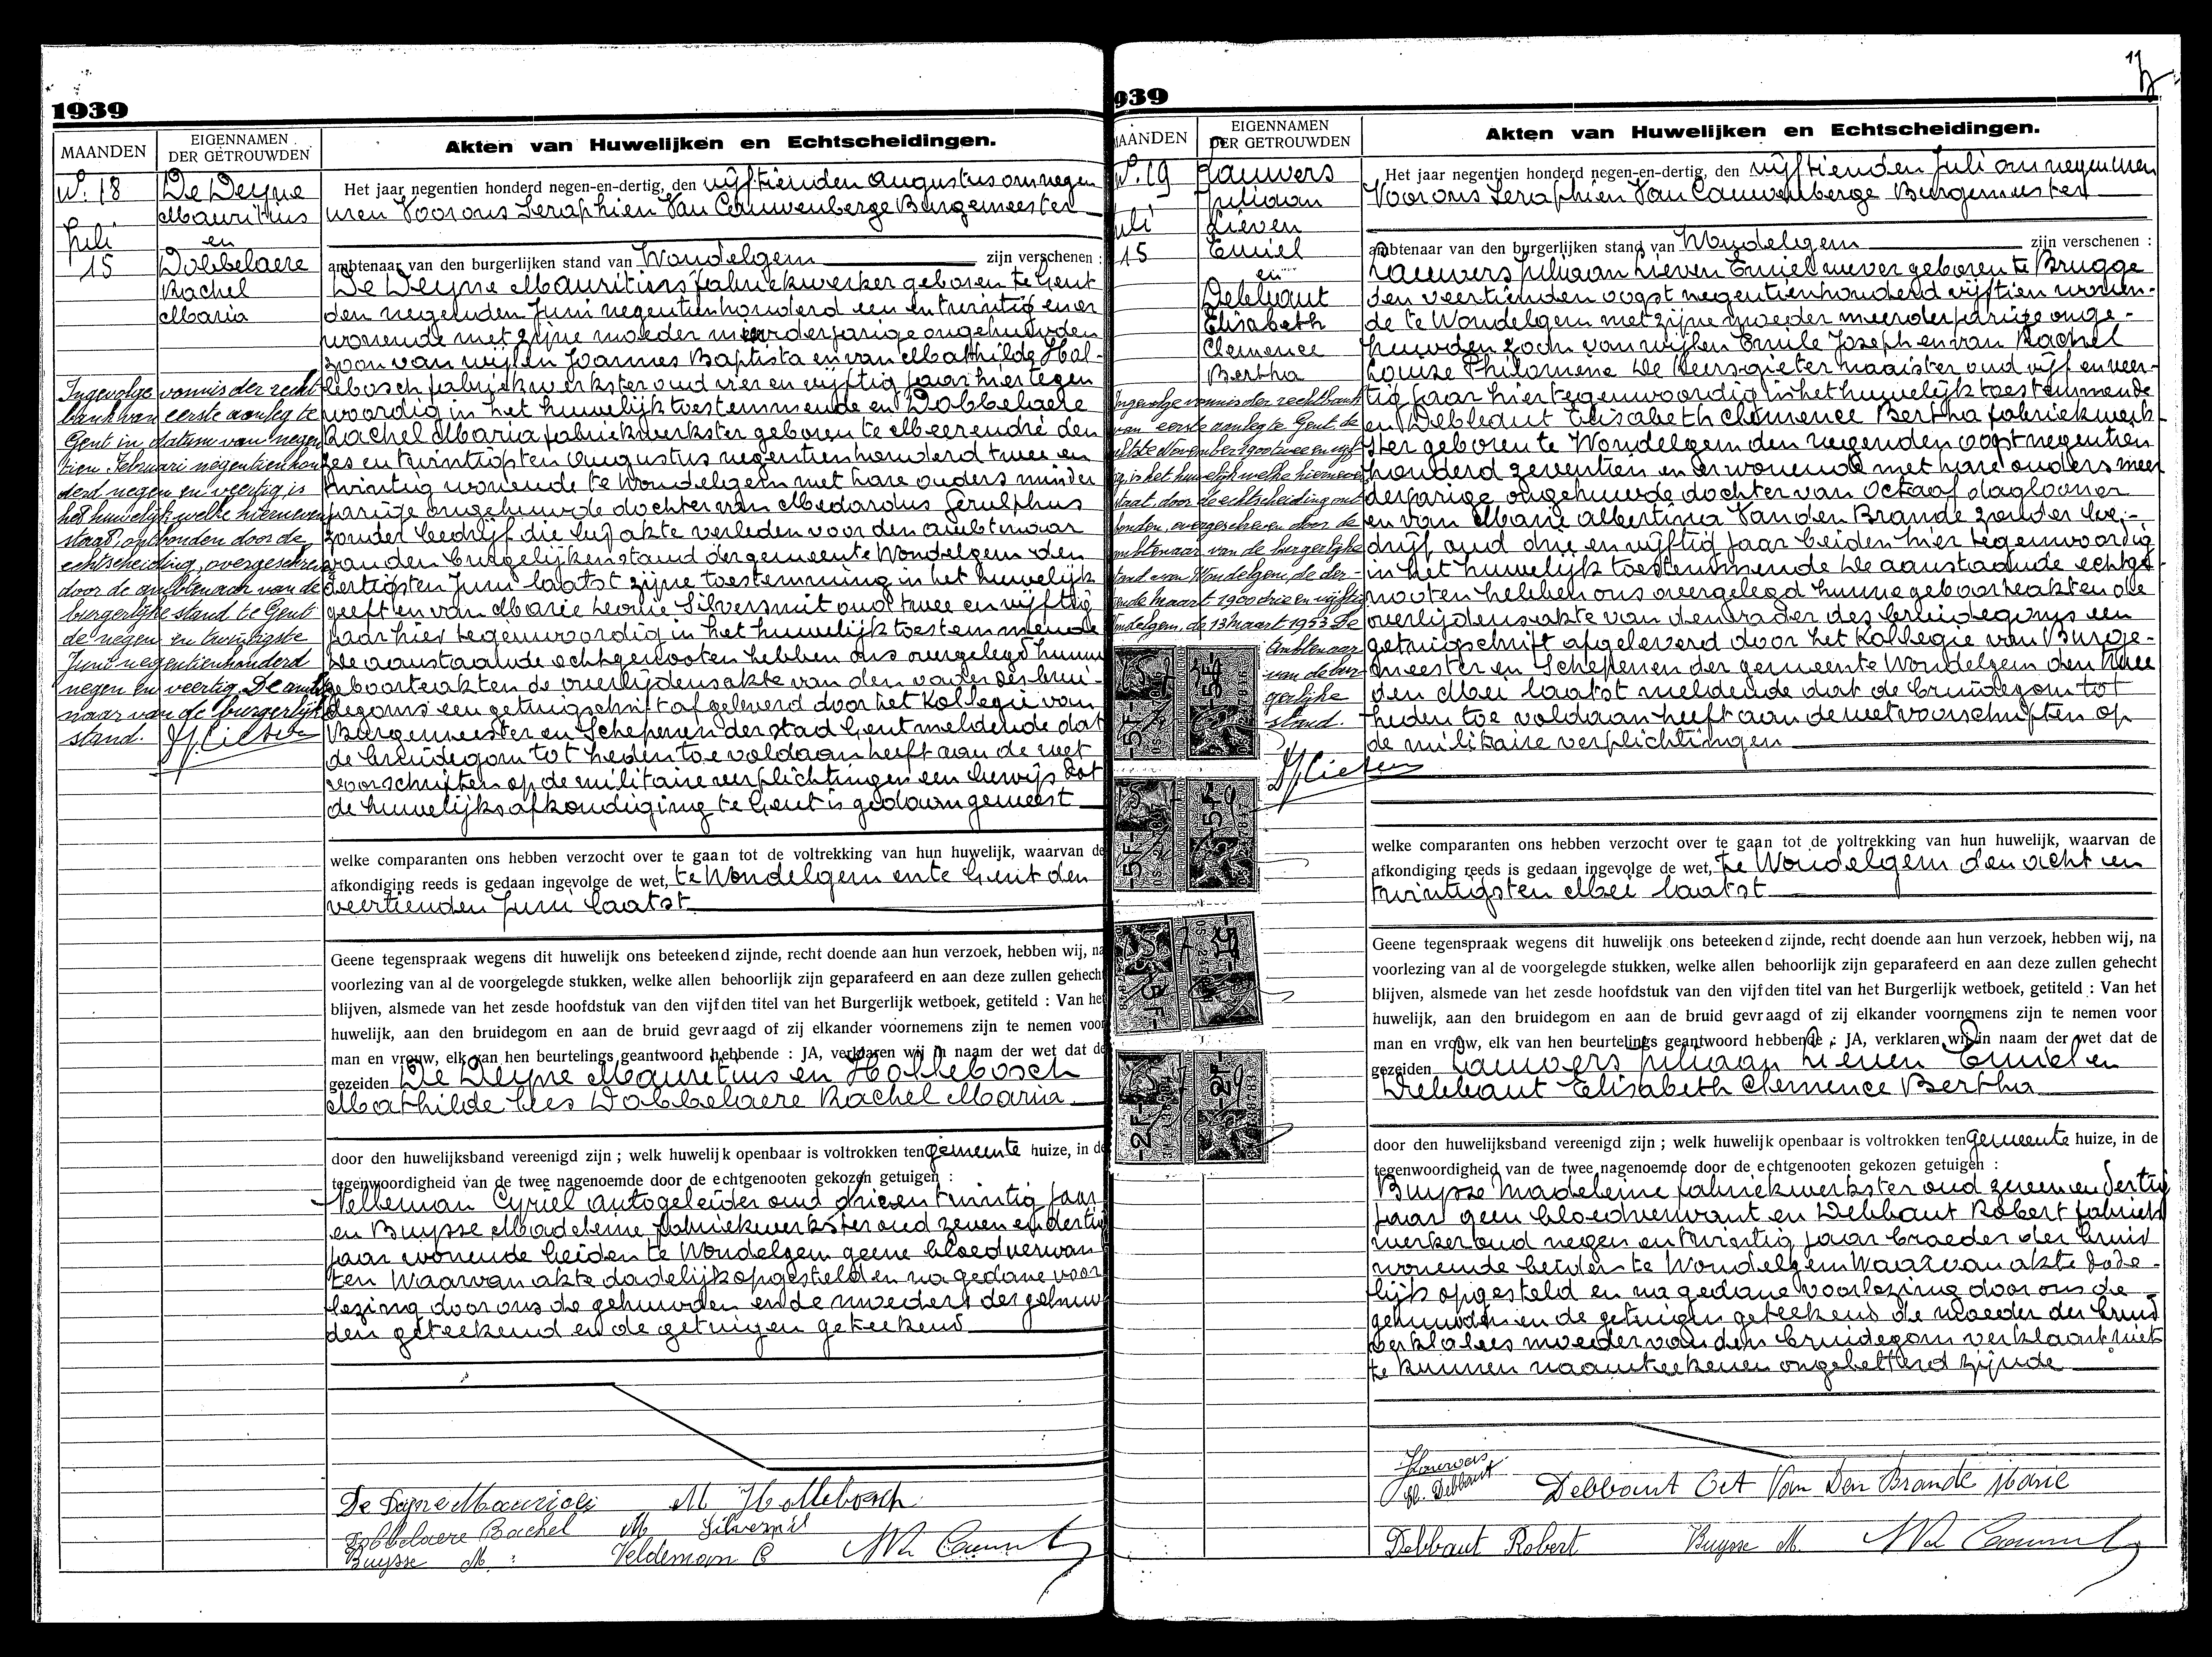 1939
MAANDEN
EIGENNAMEN
DER GETROUWDEN
Akten van Huwelijken en Echtscheidingen.
N. 18
Juli
15
De Deyne
Mauritius
en
Dobbelaere
Rachel
Maria
Ingevolge vonnis der recht
bank van eerste aanleg te
Gent in datum van negen
tien Februari negentienhon
derd negen en veertig is
het huwelijk welke hierneven
staat, ontbonden door de
echtscheiding, overgeschreven
door de ambtenaar van de
burgerlijke stand te Gent
de negen en twintigste
Juni negentienhonderd
negen en veertig. De ambte
naar van de burgerlijke
stand.
Het jaar negentien honderd negen-en-dertig, den vijftienden Augustus om negen
uren Voor ons Seraphien Van Cauwenberge Burgemeester
ambtenaar van den burgerlijken stand van Wondelgem zijn verschenen :
De Deyne Mauritius fabriekwerker geboren te Gent
den negenden Juni negentienhonderd een en twintig en er
wonende met zijne moeder minderjarige ongehuwden
zoon van wijlen Joannes Baptista en van Mathilde Hol-
lebosch fabriekwerkster oud vier en vijftig jaar hier tegen
woordig in het huwelijk toestemmende en Dobbelaere
Rachel Maria fabriekwerkster geboren te Meerendré den
zes en twintigsten Augustus negentienhonderd twee en
twintig wonende te Wondelgem met hare ouders minder
jarige ongehuwde dochter van Medardus Gerulphus
zonder bedrijf die bij akte verleden voor den ambtenaar
van den burgelijken stand der gemeente Wondelgem den
dertigsten Juni laatst zijne toestemming in het huwelijk
geeft en van Marie Leonie Silversmit oud twee en vijftig
jaar hier tegenwoordig in het huwelijk toestemmende
De aanstaande echtgenooten hebben ons overgelegd hunne
geboorteakten de overlijdensakte van den vader des brui-
degoms een getuigschrift afgeleverd door het Kollegie van
Burgemeester en Schepenen der stad Gent meldende dat
de bruidegom tot heden toe voldaan heeft aan de wet
voorschriften op de militaire verplichtingen een bewijs dat
de huwelijksafkondiging te Gent is gedaan geweest
welke comparanten ons hebben verzocht over te gaan tot de voltrekking van hun huwelijk, waarvan de
afkondiging reeds is gedaan ingevolge de wet, te Wondelgem en te Gent den
veertienden Juni laatst
Geene tegenspraak wegens dit huwelijk ons beteekend zijnde, recht doende aan hun verzoek, hebben wij, na
voorlezing van al de voorgelegde stukken, welke allen behoorlijk zijn geparafeerd en aan deze zullen gehecht
blijven, alsmede van het zesde hoofdstuk van den vijfden titel van het Burgerlijk wetboek, getiteld : Van het
huwelijk, aan den bruidegom en aan de bruid gevraagd of zij elkander voornemens zijn te nemen voor
man en vrouw, elk van hen beurtelings geantwoord hebbende : JA, verklaren wij in naam der wet dat de
gezeiden De Deyne Mauretius en Hollebosch
Mathilde lees Dobbelaere Rachel Maria
door den huwelijksband vereenigd zijn ; welk huwelijk openbaar is voltrokken ten gemeente huize, in de
tegenwoordigheid van de twee nagenoemde door de echtgenooten gekozen getuigen :
Velleman Cyriel autogeleider oud drie en twintig jaar
en Buysse Madeleine fabriekwerkster oud zeven en dertig
jaar wonende beiden te Wondelgem geene bloedverwan
ten Waarvan akte dadelijk opgesteld en na gedane voor
lezing door ons de gehuwden en de moeders der gehuw
den geteekend en de getuigen geteekend
De Deyne Maurice M Hollebosch
Dobbelaere Rachel M Silversmit
Buysse M. Veldeman C
939
11
AANDEN
EIGENNAMEN
DER GETROUWDEN
Akten van Huwelijken en Echtscheidingen.
N. 19
uli
15
Lauwers
Juliaan
Lieven
Emiel
en
Debbaut
Elisabeth
Clemence
Bertha
Ingevolge vonnis der rechtbank
van eerste aanleg te Gent de
achtste November 1900 twee en vijf
tig, is het huwelijk welke hierneven
staat, door de echtscheiding ont
bonden, overgeschreven door de
ambtenaar van de burgerlijke
stand van Wondelgem, de der-
tiende maart 1900 drie en vijftig
Wondelgem, de 13 maart 1953 De
Ambtenaar
van de bur
gerlijke
stand.
5 F
5 F
5 F
5 F
5 F
2 F
2 F
Het jaar negentien honderd negen-en-dertig, den vijftienden Juli om negen uren
Voor ons Seraphien Van Cauwenberge Burgemeester
ambtenaar van den burgerlijken stand van Wondelgem zijn verschenen :
Lauwers Juliaan Lieven Emiel wever geboren te Brugge
den veertienden oogst negentienhonderd vijftien wonen-
de te Wondelgem met zijne moeder meerderjarige onge-
huwden zoon van wijlen Emile Joseph en van Rachel
Louize Philomene De Meers gieter naaister oud vijf en veer-
tig jaar hier tegenwoordig in het huwelijk toestemmende
en Debbaut Elisabeth Clemence Bertha fabriekwerk-
ster geboren te Wondelgem den negenden oogst negentien
honderd zeventien en er wonende met hare ouders meer
derjarige ongehuwde dochter van Octaaf daglooner
en van Marie Albertina Van den Brande zonder be-
drijf oud drie en vijftig jaar beiden hier tegenwoordig
in het huwelijk toestemmende De aanstaande echtge-
nooten hebben ons overgelegd hunne geboorteakten de
overlijdensakte van den vader des bruidegoms een
getuigschrift afgeleverd door het Kollegie van Burge-
meester en Schepenen der gemeente Wondelgem den twee
den Mei laatst meldende dat de bruidegom tot
heden toe voldaan heeft aan de wetvoorschriften op
de militaire verplichtingen
welke comparanten ons hebben verzocht over te gaan tot de voltrekking van hun huwelijk, waarvan de
afkondiging reeds is gedaan ingevolge de wet, te Wondelgem den acht en
twintigsten Mei laatst
Geene tegenspraak wegens dit huwelijk ons beteekend zijnde, recht doende aan hun verzoek, hebben wij, na
voorlezing van al de voorgelegde stukken, welke allen behoorlijk zijn geparafeerd en aan deze zullen gehecht
blijven, alsmede van het zesde hoofdstuk van den vijfden titel van het Burgerlijk wetboek, getiteld : Van het
huwelijk, aan den bruidegom en aan de bruid gevraagd of zij elkander voornemens zijn te nemen voor
man en vrouw, elk van hen beurtelings geantwoord hebbende : JA, verklaren wij in naam der wet dat de
gezeiden Lauwers Juliaan Lieven Emiel en
Debbaut Elisabeth Clemence Bertha
door den huwelijksband vereenigd zijn ; welk huwelijk openbaar is voltrokken ten gemeente huize, in de
tegenwoordigheid van de twee nagenoemde door de echtgenooten gekozen getuigen :
Buysse Madeleine fabriekwerkster oud zeven en dertig
jaar geen bloedverwant en Debbaut Robert fabriek
werker oud negen en twintig jaar broeder der bruid
wonende beiden te Wondelgem Waarvan akte dade-
lijk opgesteld en na gedane voorlezing door ons de
gehuwden en de getuigen geteekend de moeder der bruid
verkla lees moeder van den bruidegom verklaart niet
te kunnen naamteekenen ongeletterd zijnde
Lauwers
El. Debbaut
Debbaut Oct Van Den Brande Marie
Debbaut Robert Buysse M